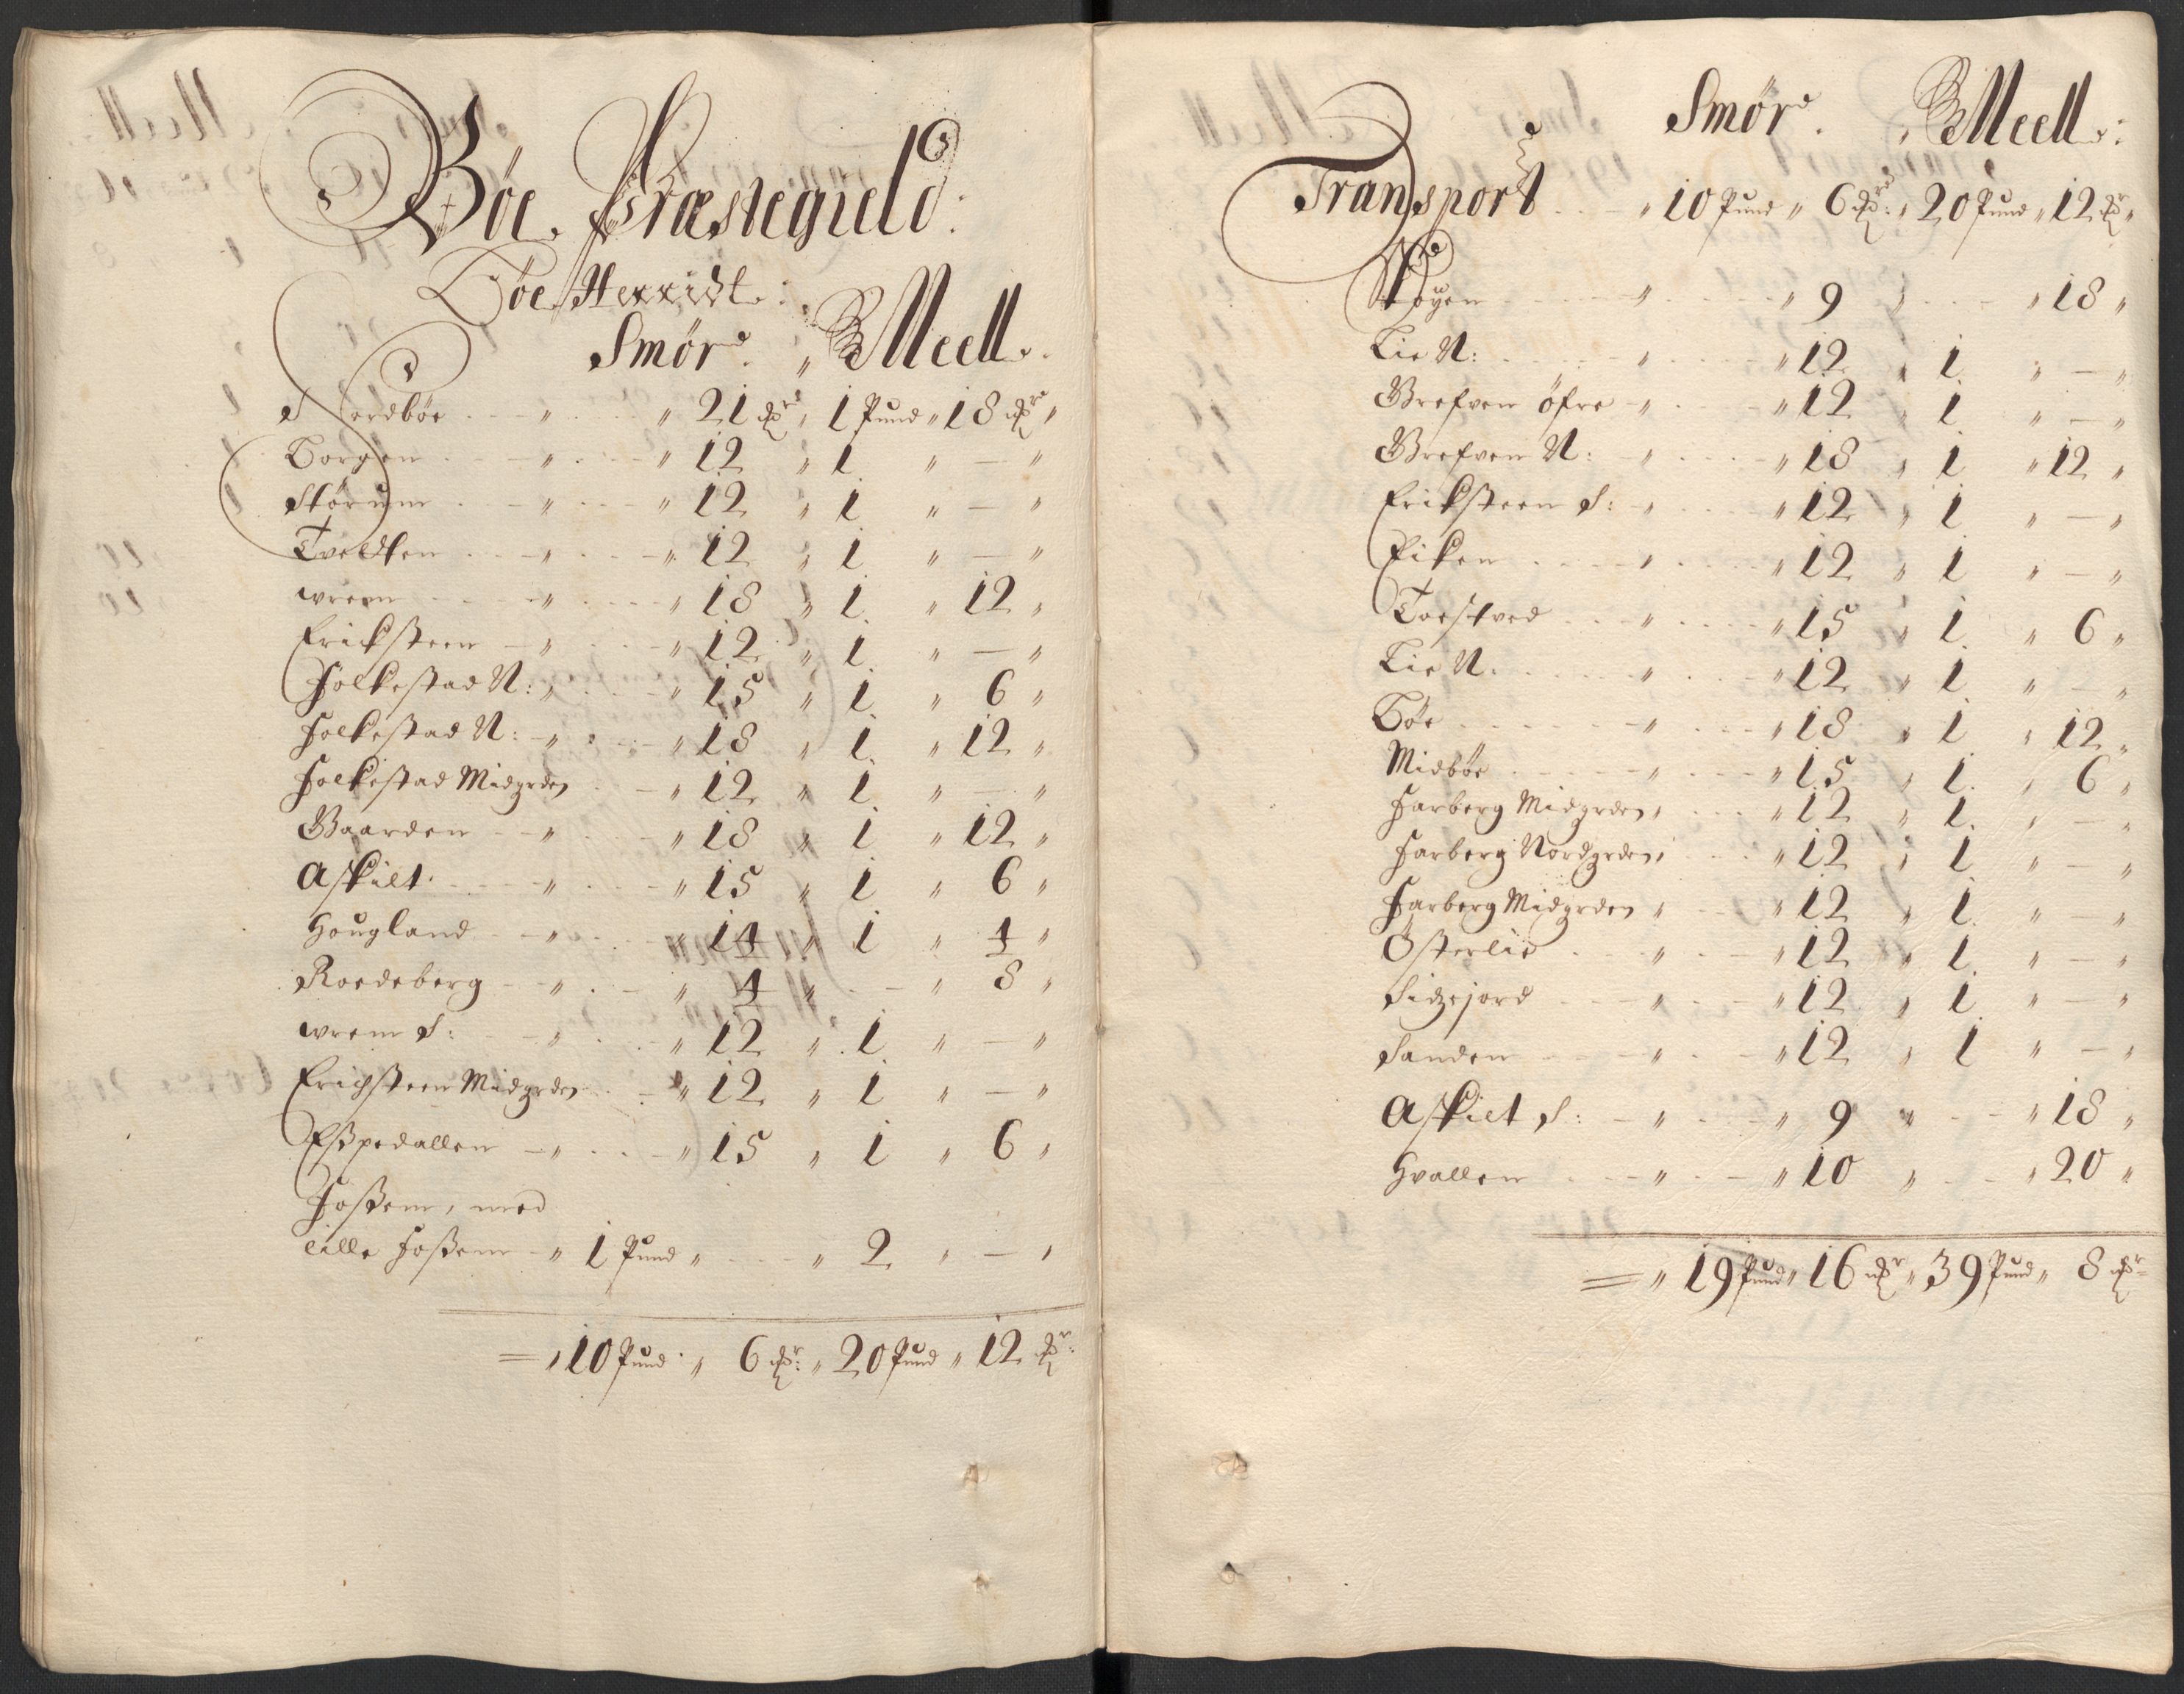 Bøe Præstegield:
Bøe Herridt:
Smør. „ Meell.
Nordbøe „ „ 21 „ 1 Pund „ 18 „
Borgen „ „ 12 „ 1 „ — „
Størum „ „ 12 „ 1 „ — „
Tveidten „ „ 12 „ 1 „ — „
wrem „ „ 18 „ 1 „ 12 „
Ericksteen „ „ 12 „ 1 „ — „
Folkestad N: „ „ 15 „ 1 „ 6 „
Folkestad N: „ „ 18 „ 1 „ 12 „
Folkestad Midgrden „ 12 „ 1 „ — „
Gaarden „ „ 18 „ 1 „ 12 „
Askilt „ „ 15 „ 1 „ 6 „
Hougland „ „ 14 „ 1 „ 4 „
Roedeberg „ „ 4 „ — „ 8 „
wrem S: „ „ 12 „ 1 „ — „
Erichsteen Midgrden „ 12 „ 1 „ — „
Eßpedallen „ „ 15 „ 1 „ 6 „
Foßem, med
lille Foßem „ 1 Pund „ „ 2 „ — „
= „ 10 Pund „ 6 „ 20 Pund „ 12
Smør. „ Meell:
Transport „ 10 Pund „ 6 „ 20 Pund „ 12 „
„ „ 9 „ „ 18 „
Lie N: „ „ 12 „ 1 „ — „
Grefven öfre „ „ 12 „ 1 „ — „
Grefven N: „ „ 18 „ 1 „ 12 „
Eriksteen S: „ „ 12 „ 1 „ — „
Eiken „ „ 12 „ 1 „ — „
Toestved „ „ 15 „ 1 „ 6 „
Lie N. „ „ 12 „ 1 „ — „
Bøe „ „ 18 „ 1 „ 12 „
Midbøe „ „ 15 „ 1 „ 6 „
Farberg Midgrden „ „ 12 „ 1 „ — „
Farberg Nordgrden „ „ 12 „ 1 „ — „
Farberg Midgrden „ „ 12 „ 1 „ — „
Østerlie „ „ 12 „ 1 „ — „
Sidzejord „ „ 12 „ 1 „ — „
Sanden „ „ 12 „ 1 „ — „
Askilt S: „ „ 9 „ — „ 18 „
Hvallen „ „ 10 „ — „ 20 „
= „ 19 Pund „ 16 „ 39 Pund „ 8